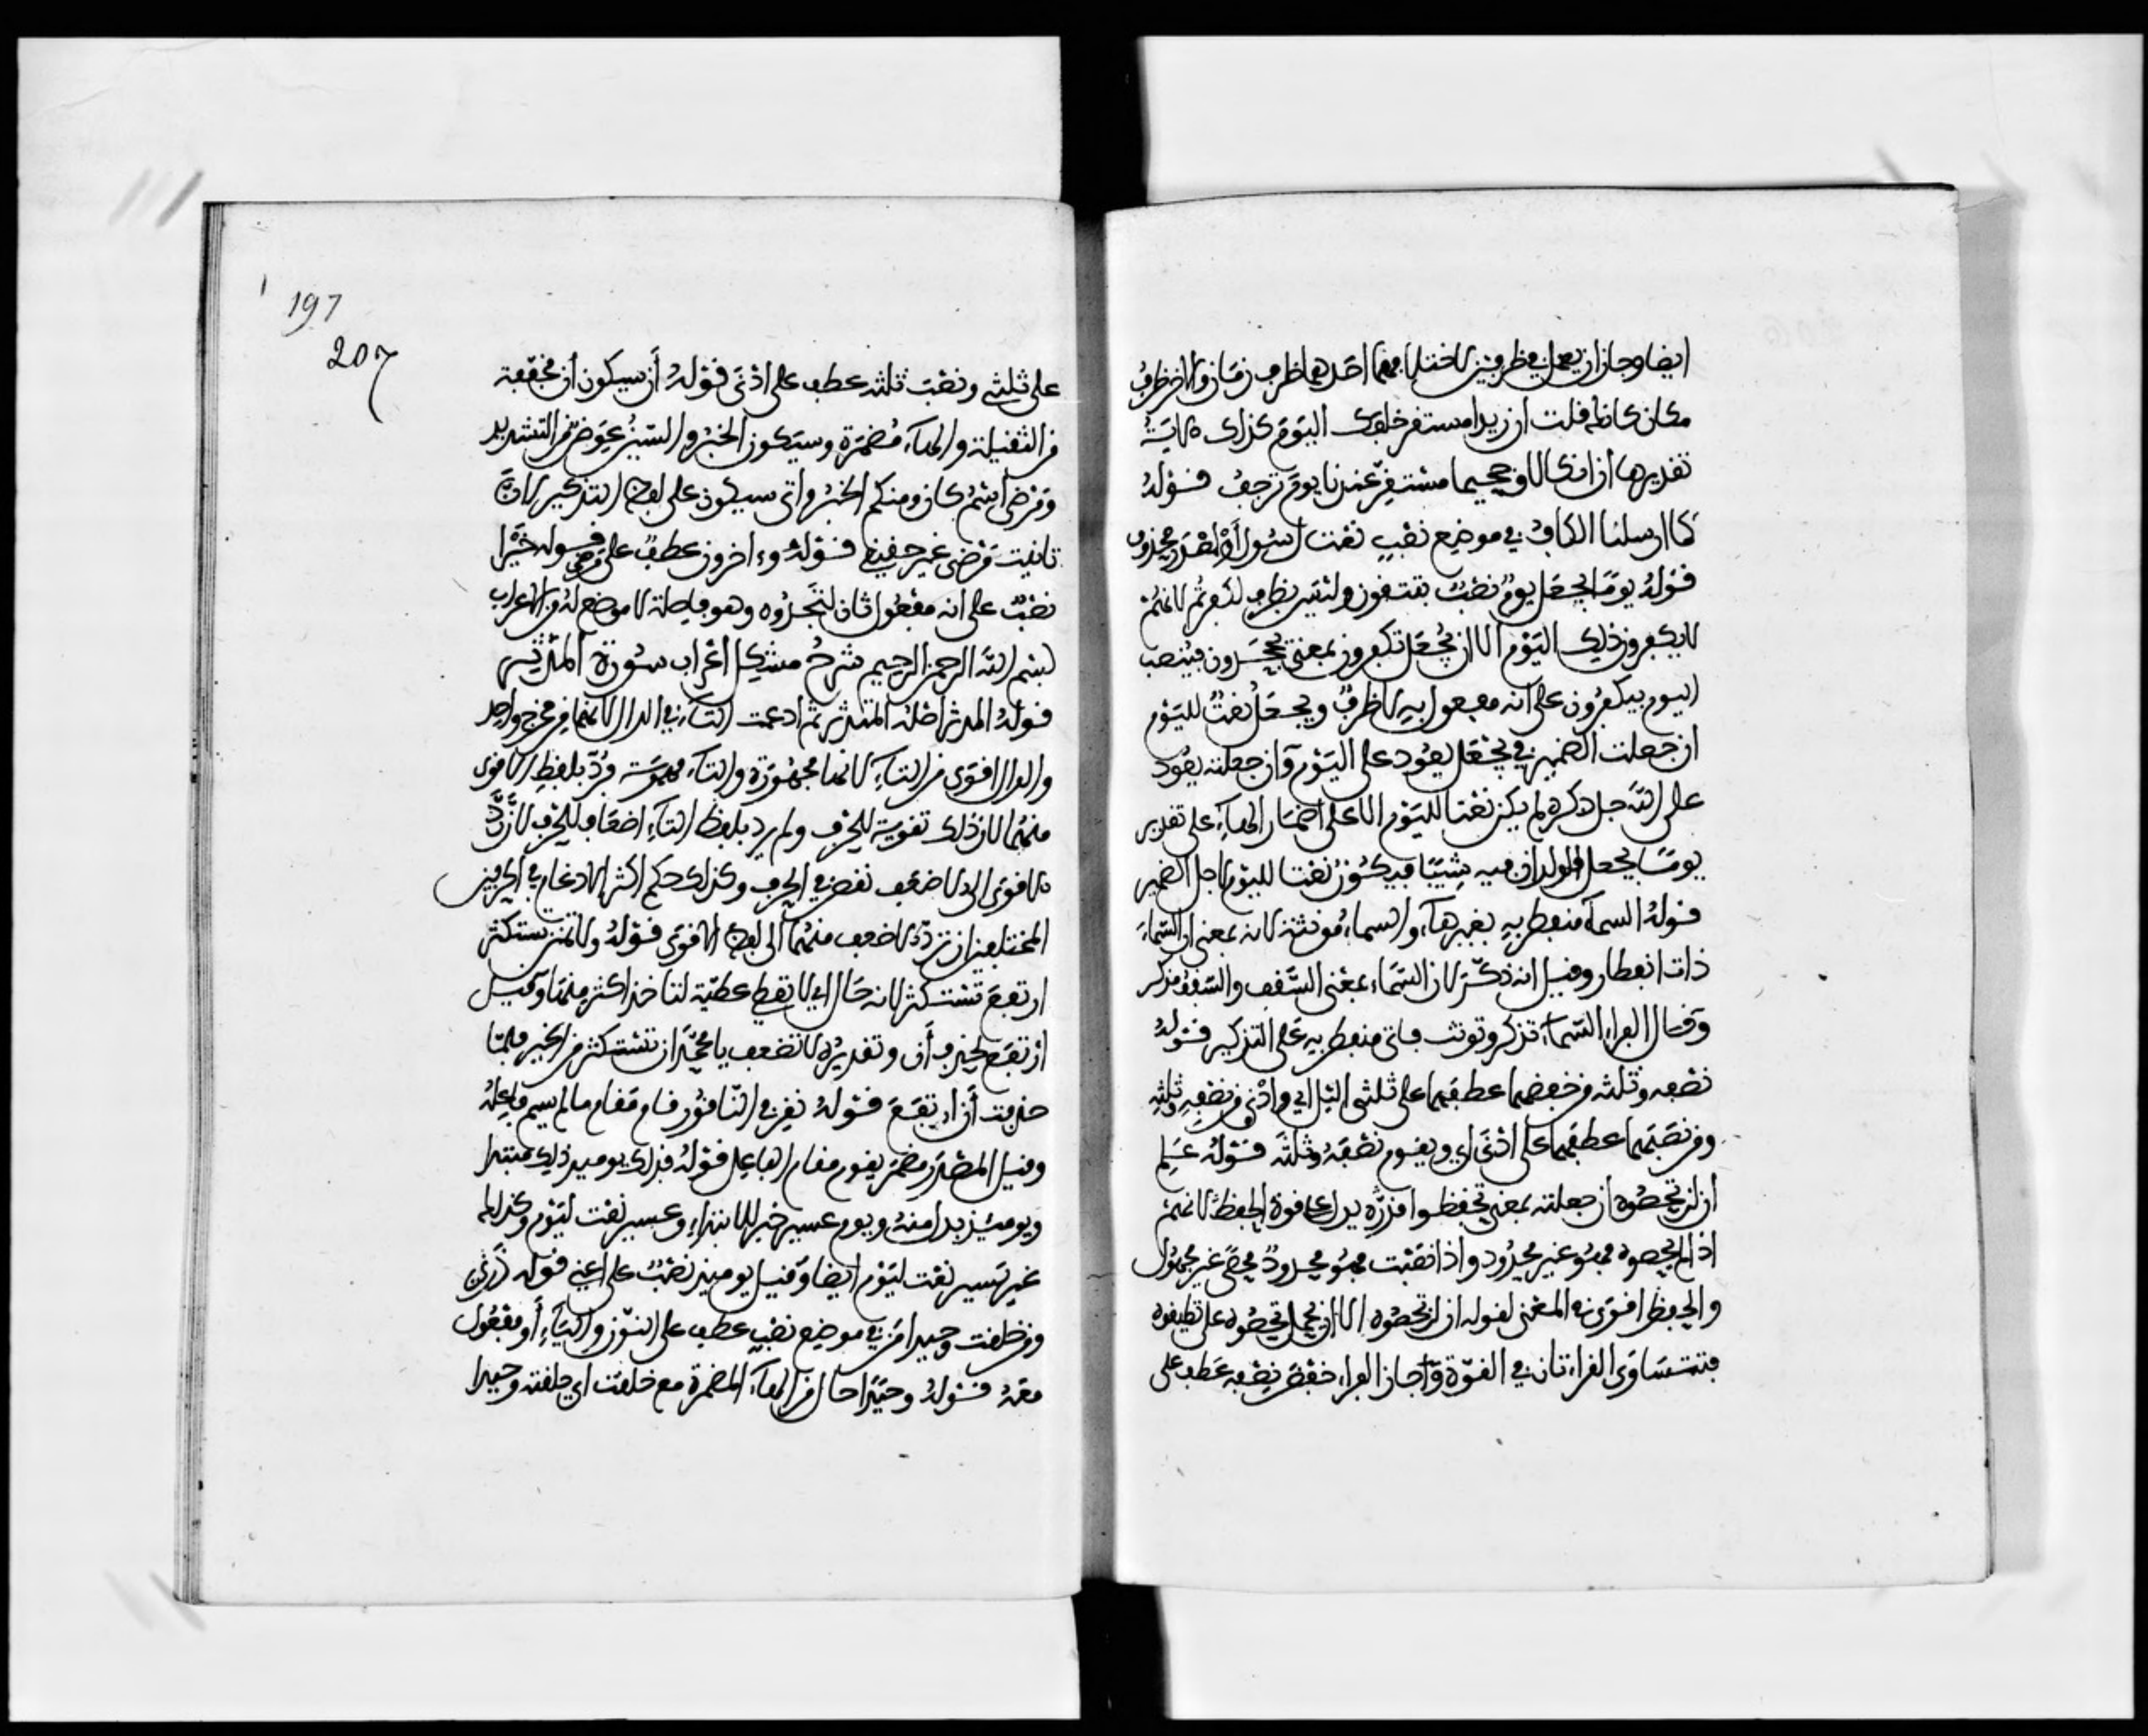 ايضا وجاز ان يعمل في ظرفين لاختلافهما احدهما ظرف زمان والاخر ظرف
مكان كانه قلت ان زيدا مستقر خلفك اليوم كذلك الاية
تقديرها ان انكالا وجحيما مستقر عندنا يوم ترجف قوله
كما ارسلنا الكاف في موضع نصب نعت لرسول او لمصدر محذوف
قوله يوما يجعل يوم نصب بتتقون وليس بظرف لكفرتم لانهم
لا يكفرون ذلك اليوم الا ان يجعل تكفرون بمعنى تجحدون فينصب
اليوم بيكفرون على انه مفعول به لا ظرف ويجعل نعت لليوم
ان جعلت الضمير في يجعل يعود على اليوم وان جعلته يعود
على الله جل ذكره لم يكن نعتا لليوم الا على اضمار الهاء على تقدير
يوما يجعل الولدان فيه شيبا فيكون نعتا لليوم لاجل الضمير
قوله السماء منفطر به بغير هاء والسماء مونثة لانه بمعنى السماء
ذات انفطار وقيل انه ذكر لان السماء بمعنى السقف والسقف مذكر
وقال الفراء السماء تذكر وتونث فاتى منفطر به على التذكير قوله
نصفه وثلثه من خفضهما عطفهما على ثلثي اليل اي وادنى من نصفه وثلثه
ومن نصبهما عطفهما على ادنى اي ويقوم نصفه وثلثه قوله علم
ان لن تحصوه ان جعلته بمعنى تحفظوا قدره يدل على قوة الحفظ لانهم
اذا لم يحصوه فهو غير محدود واذا نصبت فهو محدود محصى غير مجهول
والحفظ اقوى في المعنى لقوله ان لن تحصوه الا ان يحمل تحصوه على تطيقوه
فتتساوى القراءتان في القوة واجاز الفراء خفض نصفه عطف على
197
207
على ثلثي ونصب ثلثه عطف على ادنى قوله ان سيكون ان مخففة
من الثقيلة والهاء مضمرة وسيكون الخبر والسين عوض من التشديد
ومرضى اسم كان ومنكم الخبر واتى سيكون على لفظ التذكير لان
تانيث مرضى غير حقيقي قوله وءاخرون عطف على مرضى قوله خيرا
نصب على انه مفعول ثان لتجدوه وهو فاصلة لا موضع له من الاعراب
بسم الله الرحمن الرحيم شرح مشكل اعراب سورة المدثر
قوله المدثر اصله المتدثر ثم ادغمت التاء في الدال لانهما من مخرج واحد
والدال اقوى من التاء لانها مجهورة والتاء مهموسة فرد بلفظ الاقوى
منهما لان ذلك تقوية للحرف ولم يرد بلفظ التاء اضعافا للحرف لان رد
الاقوى الى الاضعف نقص في الحرف وكذلك حكم اكثر الادغام في الحرفين
المختلفين ان ترد الاضعف منهما الى لفظ الاقوى قوله ولا تمنن تستكثر
ارتفع تستكثر لانه حال اي لا تعط عطية لتاخذ اكثر منها وقيل
ارتفع بحذف ان وتقديره لا تضعف يا محمد ان تستكثر من الخير فلما
حذفت ان ارتفع قوله نقر في الناقور قام مقام ما لم يسم فاعله
وقيل المصدر مضمر يقوم مقام الفاعل قوله فذلك يوميذ ذلك مبتدا
ويومئذ بدل منه ويوم عسير خبر للابتداء وعسير نعت ليوم وكذلك
غير يسير نعت ليوم ايضا وقيل يوميذ نصب على اعني قوله ذرني
ومن خلقت وحيدا من في موضع نصب عطف على النون والياء او مفعول
معه قوله وحيدا حال من الهاء المضمرة مع خلقت اي خلقته وحيدا